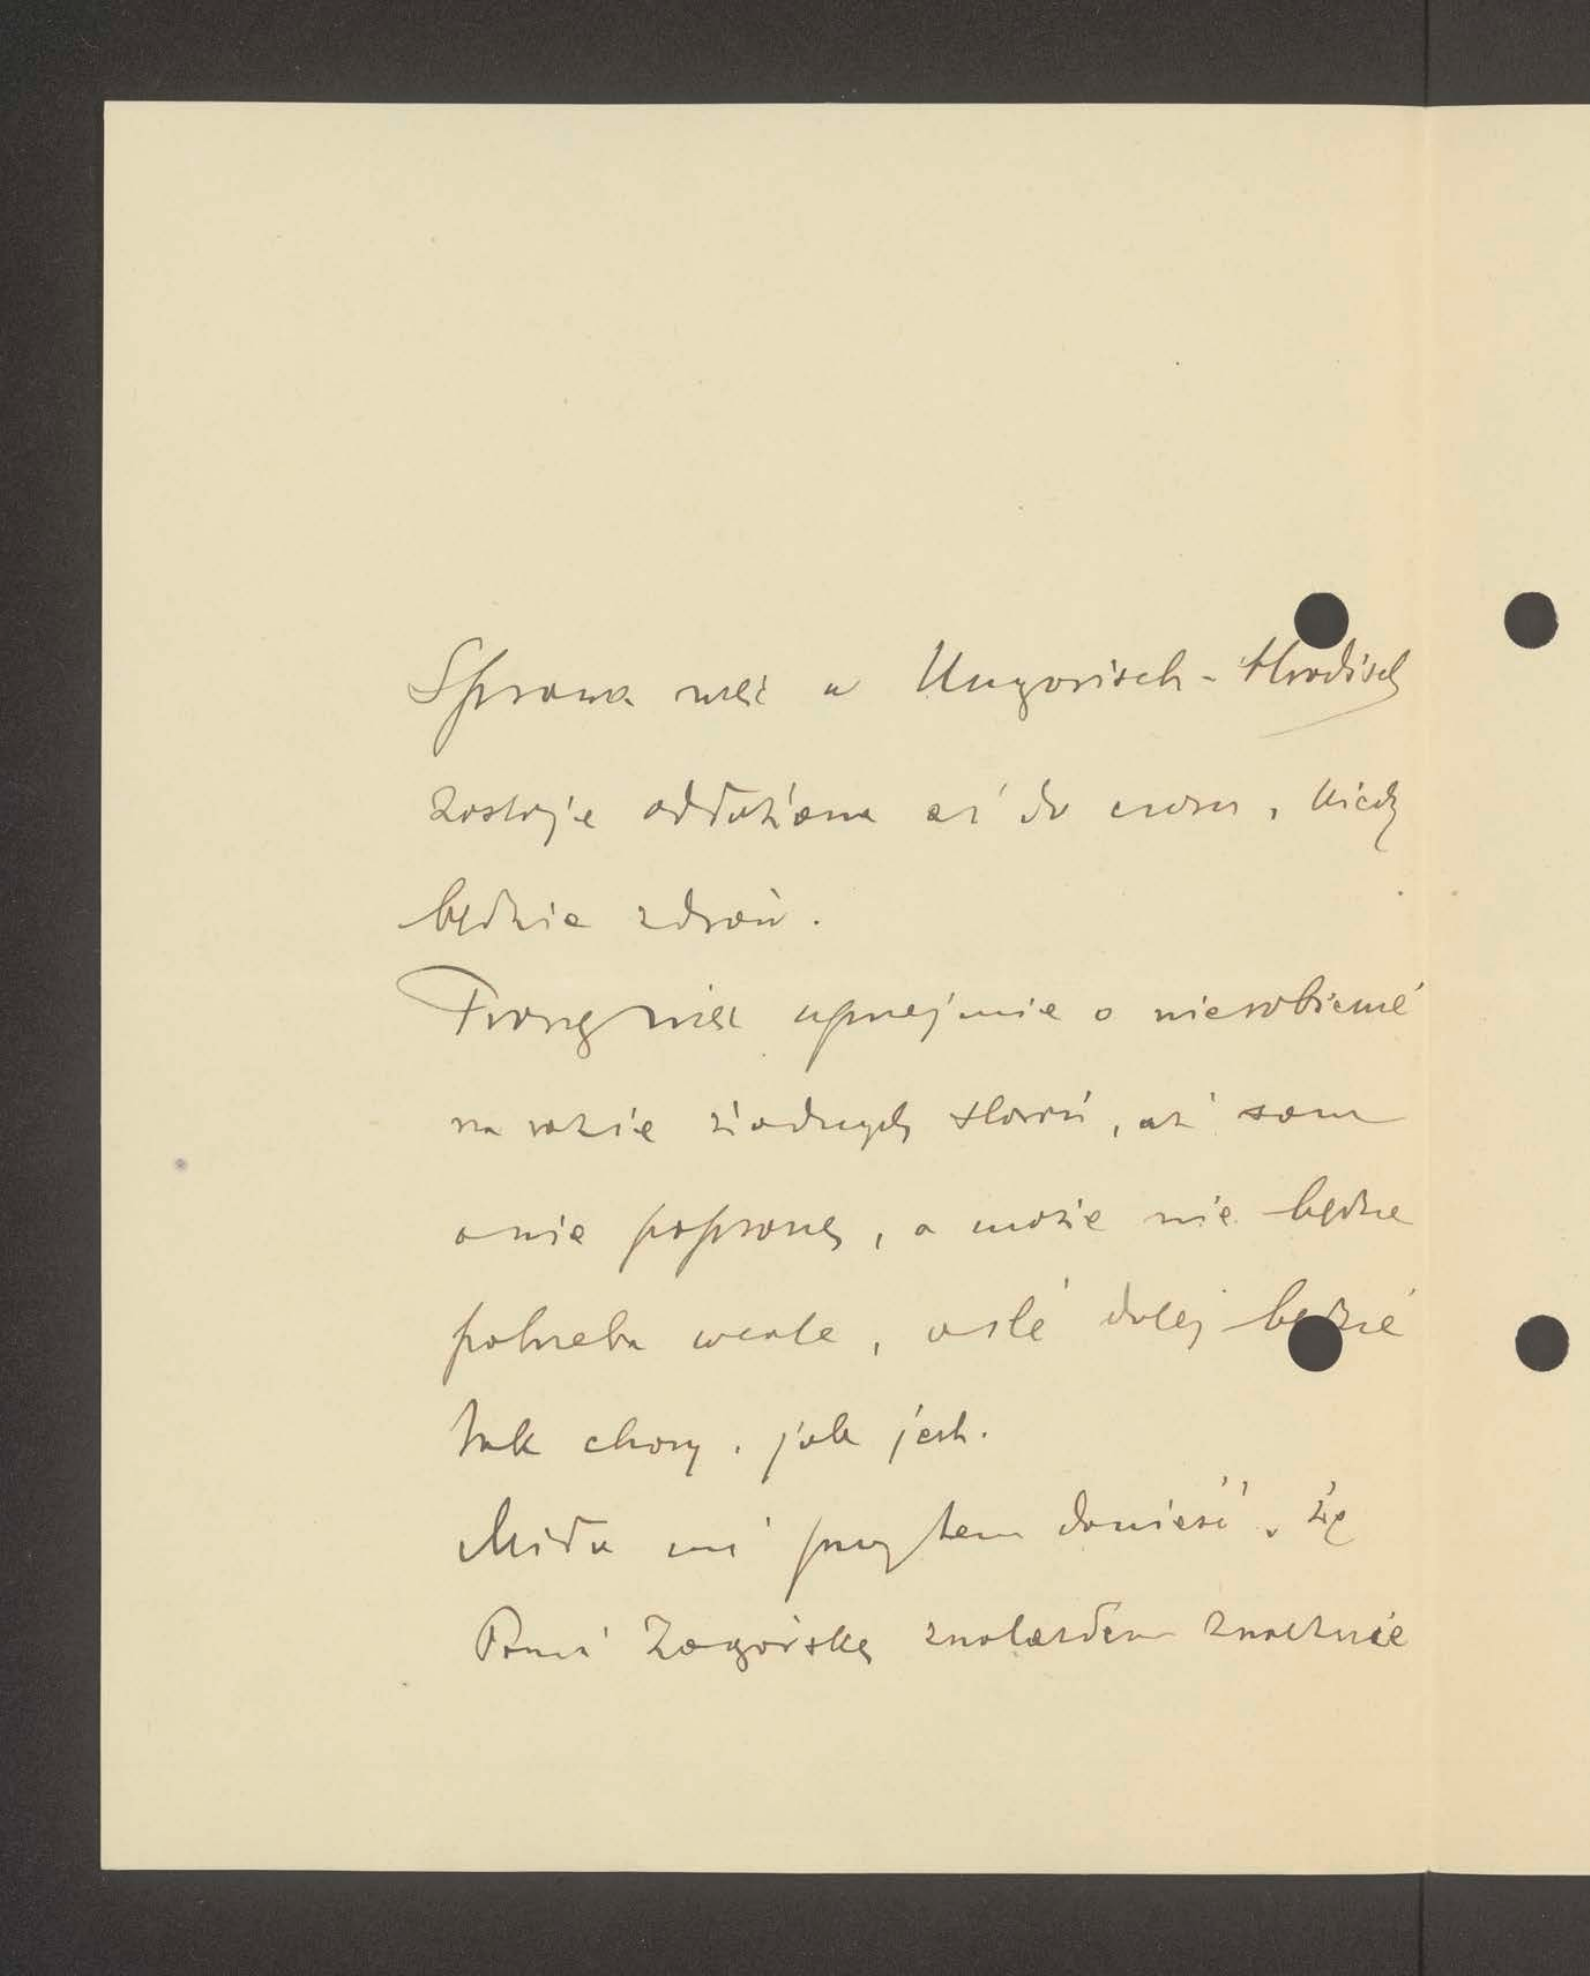 Sprawa więc w Ungarisch-Hradisch
zostaje oddalona aż do czasu, kiedy
będzie zdrów.
Proszę więc uprzejmie o nierobienie
na razie żadnych starań, aż sam
o nie poproszę, a może nie będzie
potrzeba wcale, o ile dalej będzie
tak chory, jak jest.
Miło mi przytem donieść, że
Panią Zagórską znalazłem znacznie